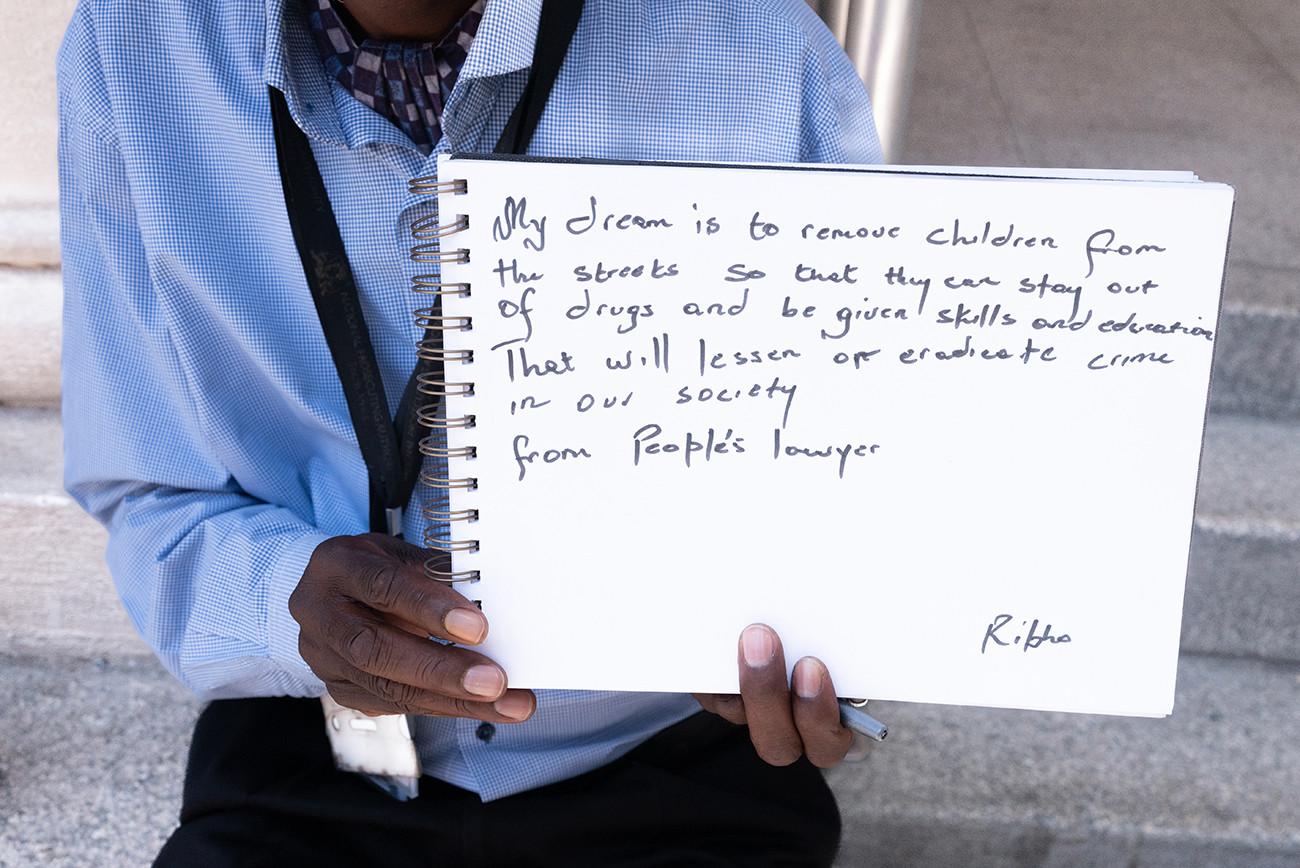 My dream is to remove children from
the streets so that they can stay out
of drugs and be given skills and education
That will lessen or eradicate crime
in our society
from People's lawyer